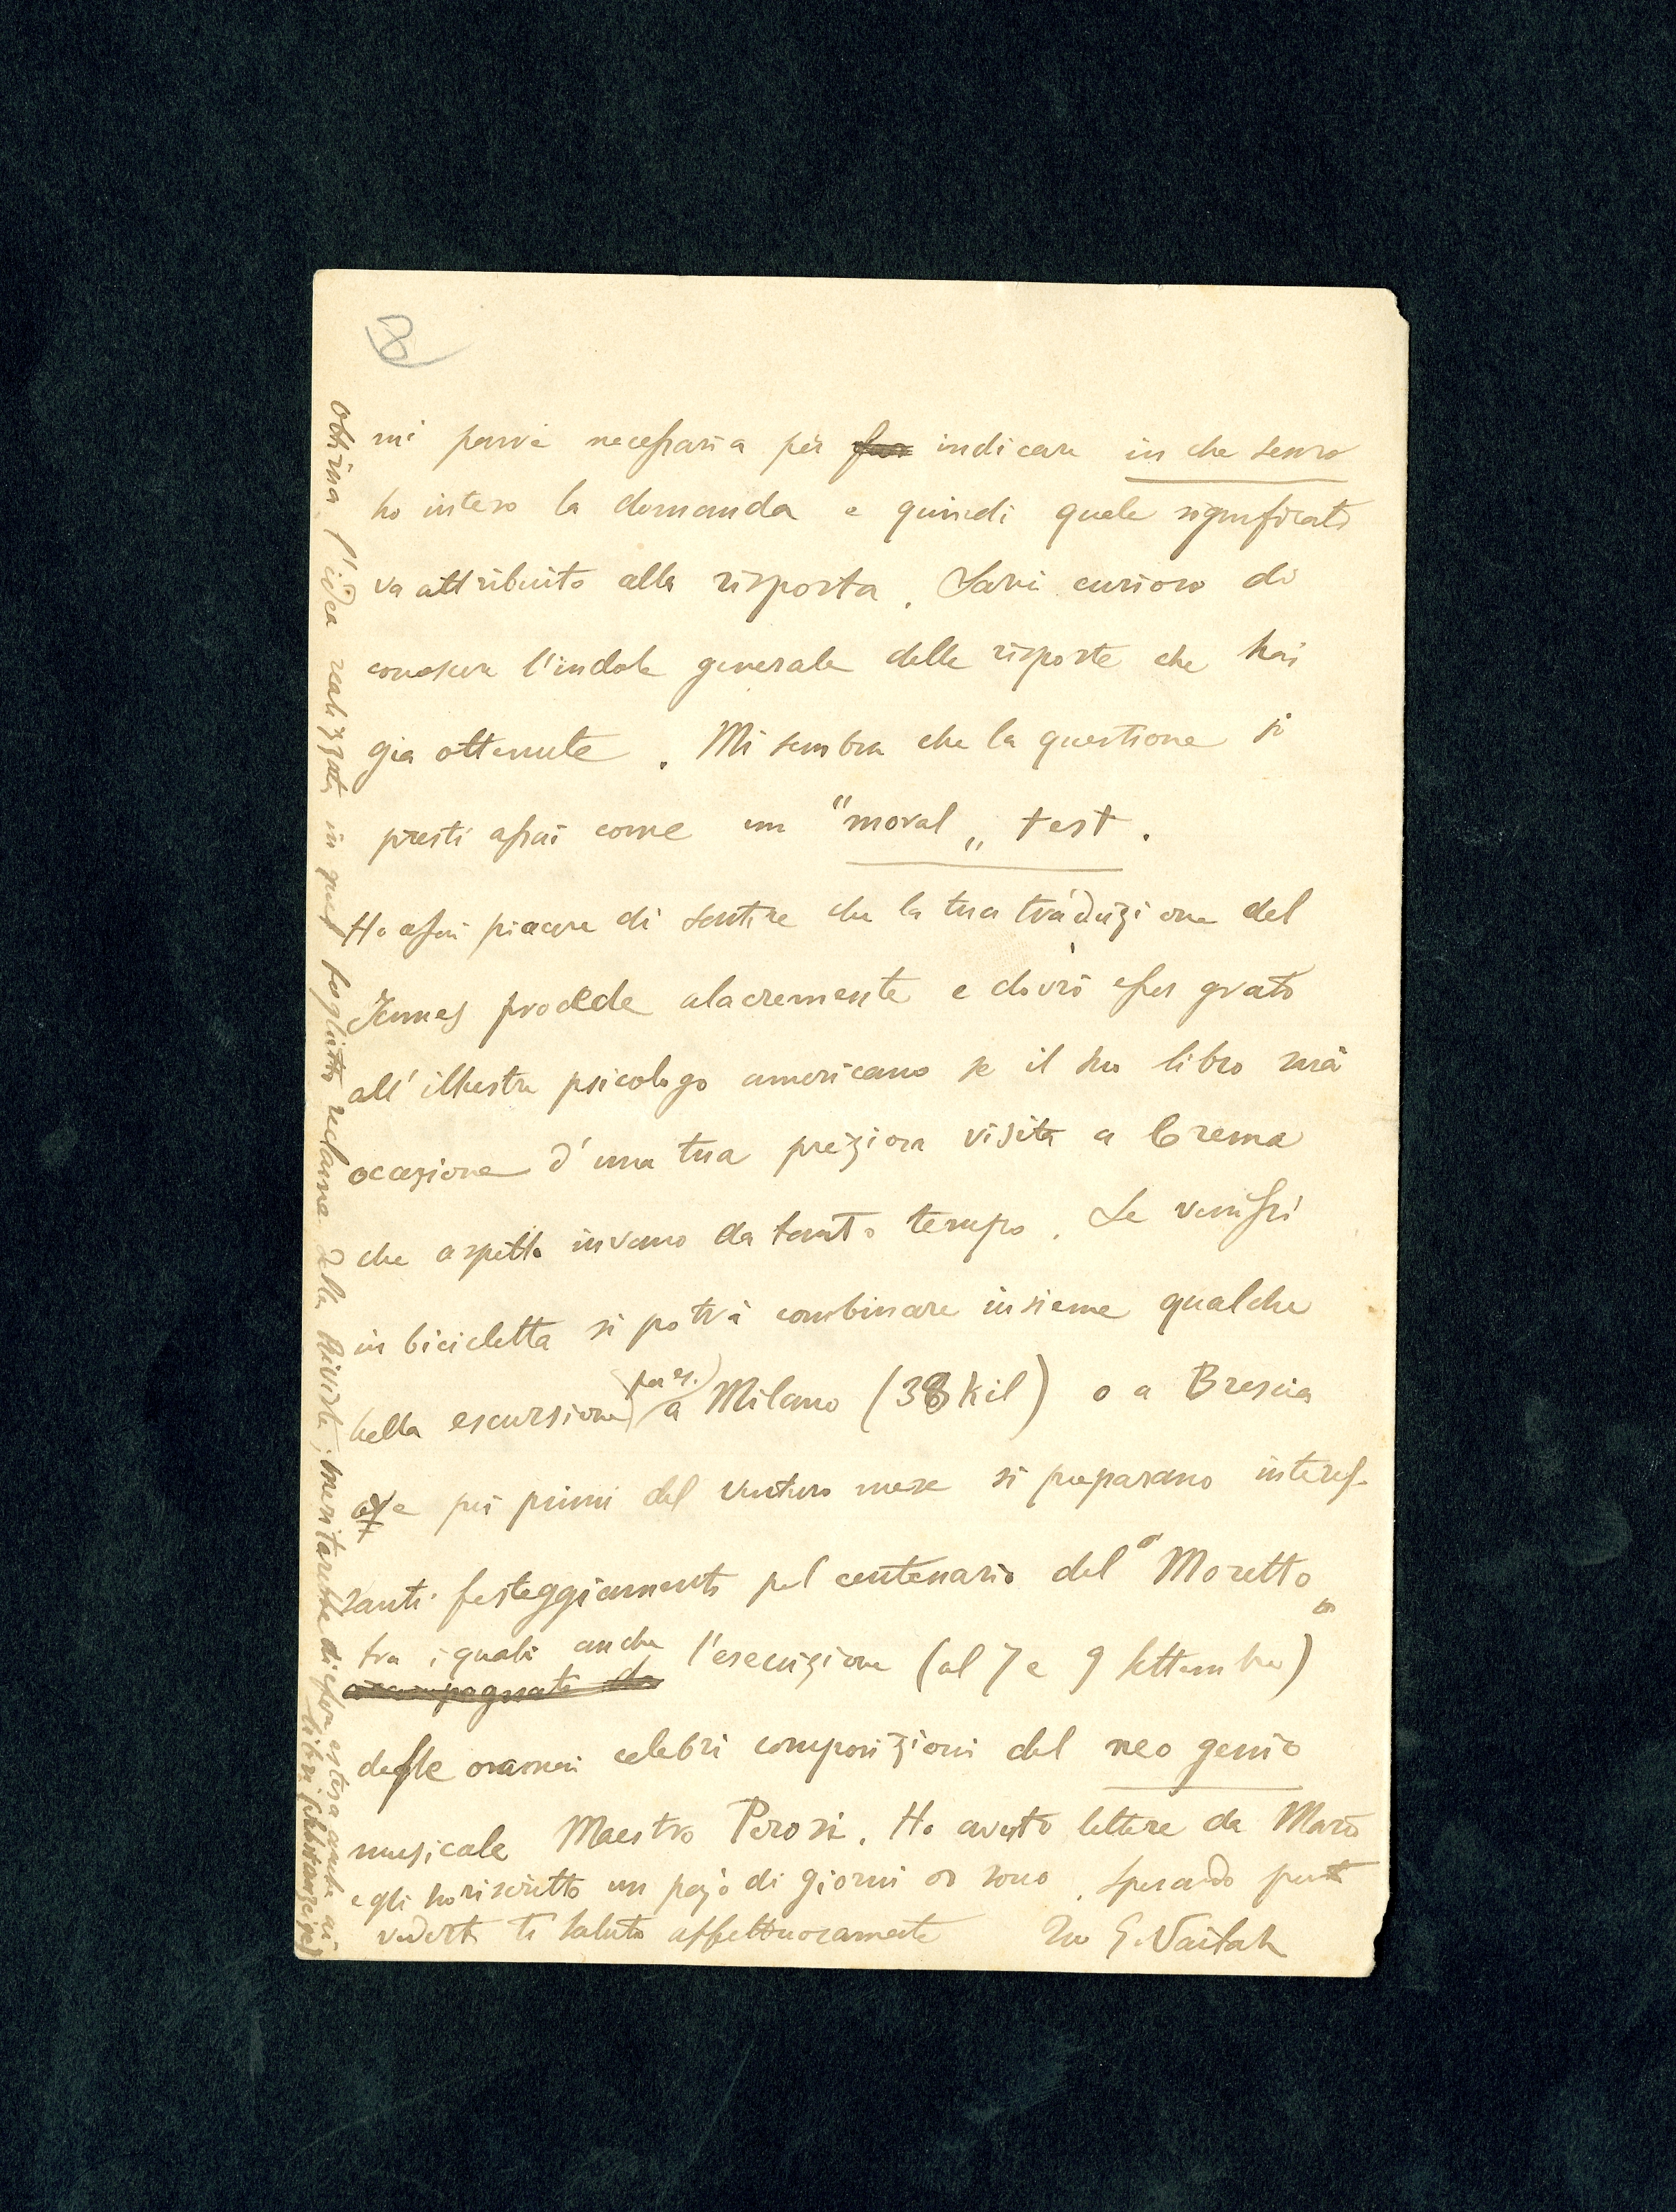 8
mi parve necessaria per far indicare in che senso
ho inteso la domanda e quindi quale significato
va attribuito alla risposta. Sarei curioso di
conoscere l'indole generale delle risposte che hai
già ottenute. Mi sembra che la questione si
presti assai come un "moral„ test.
Ho assai piacere di sentire che la tua traduzione del
James procede alacremente e dovrò esser grato
all'illustre psicologo americano se il suo libro sarà
occasione d'una tua preziosa visita a Crema
che aspetto invano da tanto tempo. Se venissi
in bicicletta si potrà combinare insieme qualche
bella escursione (per es.) a Milano (38 kil) o a Brescia
ove pei primi del venturo mese si preparano interes-
santi festeggiamenti pel centenario del "Moretto„
tra i quali anche l'esecuzione (al 7 e 9 settembre)
accompagnati da
delle oramai celebri composizioni del neo genio
musicale Maestro Perosi. Ho avuto lettere da Marò
e gli ho riscritto un pajo di giorni or sono. Sperando
vederti ti saluto affettuosamente Tuo G. Vailati
Ottima l'idea realizzata in quel foglietto reclame della Rivista; meritarebbe di esser estesa anche ai
libri